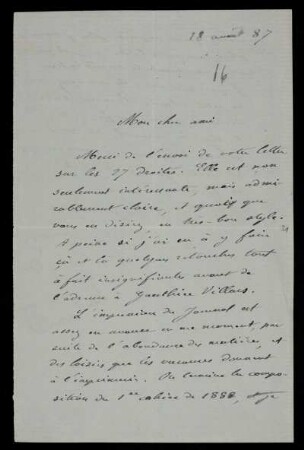 18 août 87
16
Mon cher ami
Merci de l'envoi de votre lettre
sur les 27 droites. Elle est non
seulement intéressante, mais admi
rablement claire, et quoi que
vous en disiez, en très-bon style.
A peine si j'ai eu à y faire
çà et là quelques retouches tout
à fait insignifiantes avant de
l'adresser à Gauthier Villars.
L'impression du Journal est
assez en avance en ce moment, par
suite de l'abondance des matières, et
des loisirs que les vacances donnent
à l'imprimerie. On termine la compo
sition du 1er cahier de 1888,